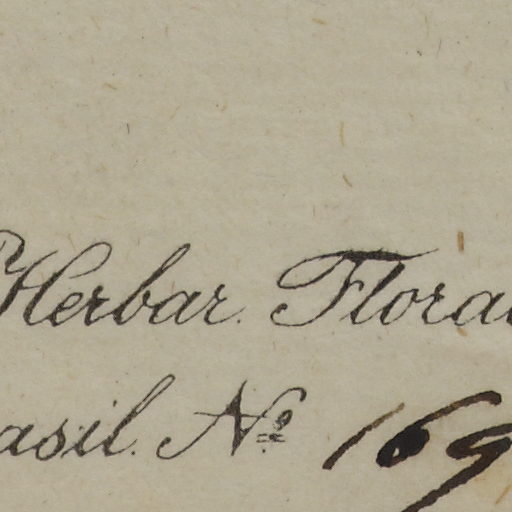 Herbar. Florae
asil. Nº 169